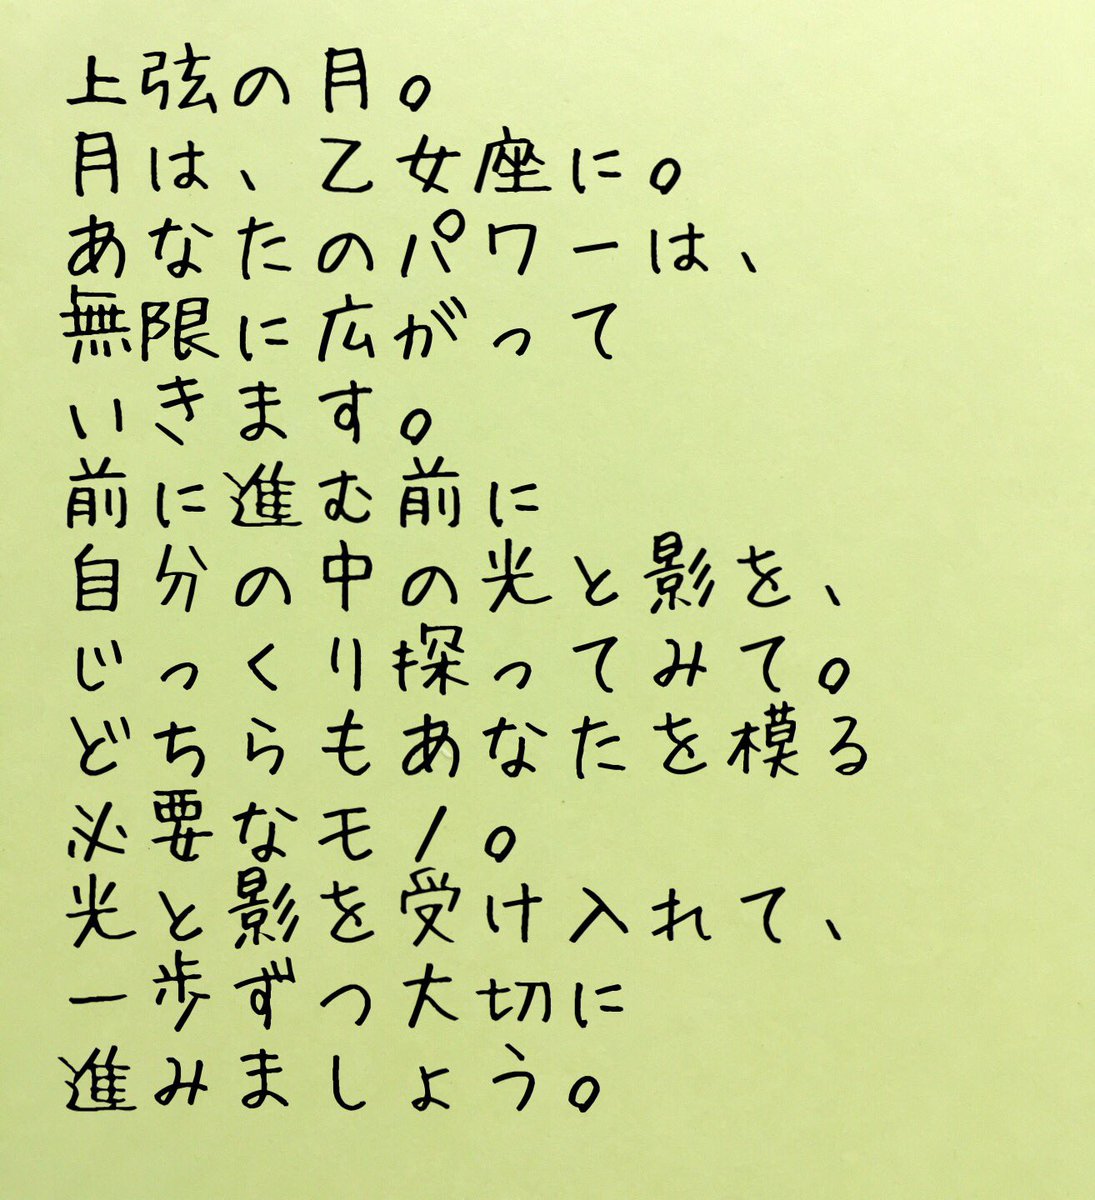 上弦の月。
月は、乙女座に。
あなたのパワーは、
無限に広がって
いきます。
前に進む前に
自分の中の光と影を、
じっくり探ってみて。
どちらもあなたを模る
必要なモノ。
光と影を受け入れて、
一歩ずつ大切に
進みましょう。